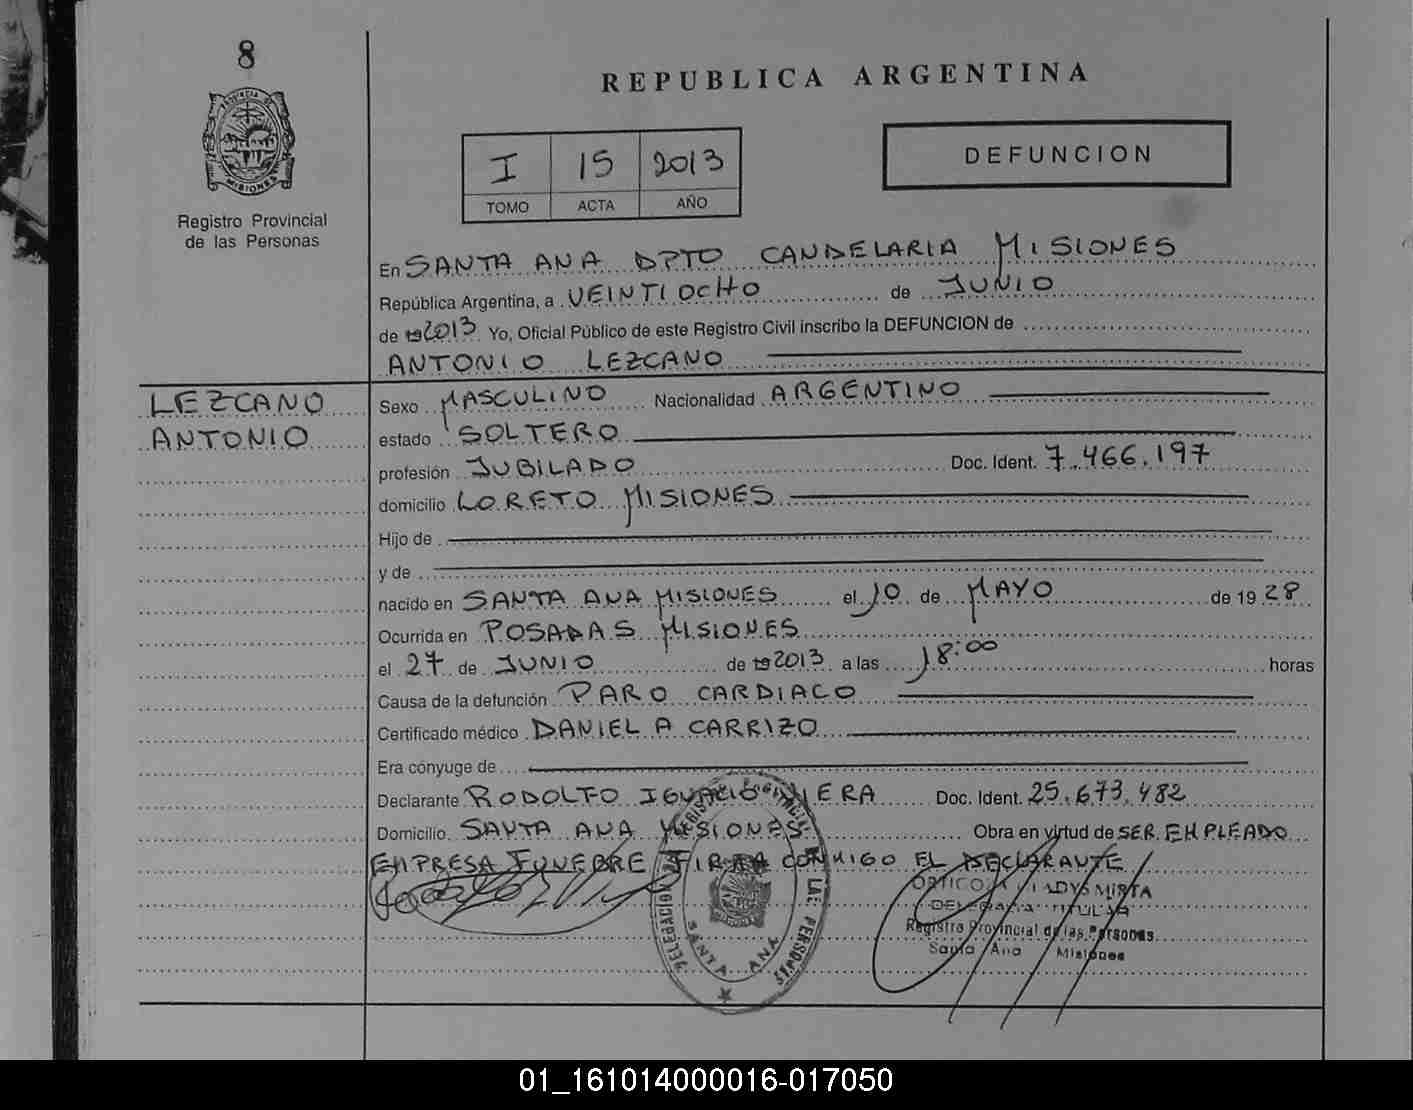 8
PROVINCIA DE
MISIONES
Registro Provincial
de las Personas
REPUBLICA ARGENTINA
I 15 2013
TOMO ACTA AÑO
DEFUNCION
En SANTA ANA DPTO CANDELARIA MISIONES
República Argentina, a VEINTIOCHO de JUNIO
de 19 2013 Yo, Oficial Público de este Registro Civil inscribo la DEFUNCION de
ANTONIO LEZCANO
LEZCANO
ANTONIO
Sexo MASCULINO Nacionalidad ARGENTINO
estado SOLTERO
profesión JUBILADO Doc. Ident. 7.466.197
domicilio LORETO MISIONES
Hijo de
y de
nacido en SANTA ANA MISIONES el 10 de MAYO de 19 28
Ocurrida en POSADAS MISIONES
el 27 de JUNIO de 19 2013 a las 18:00 horas
Causa de la defunción PARO CARDIACO
Certificado médico DANIEL A CARRIZO
Era cónyuge de
Declarante RODOLFO IGNACIO VIERA Doc. Ident. 25.673.482
Domicilio SANTA ANA MISIONES Obra en virtud de SER EMPLEADO
EMPRESA FUNEBRE FIRMA CONMIGO EL DECLARANTE
DELEGACION LAS PERSONAS
SANTA ANA
MIRTA
DELEGADA TITULAR
Registro Provincial de las Personas
Santa Ana Misiones
01_161014000016-017050